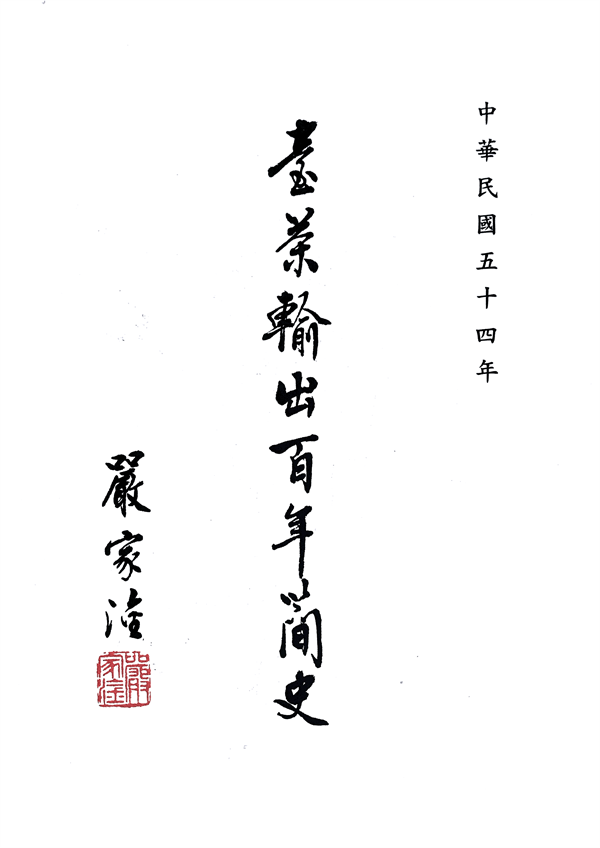 中華民國五十四年
臺茶輸出百年簡史
嚴家淦
嚴家淦